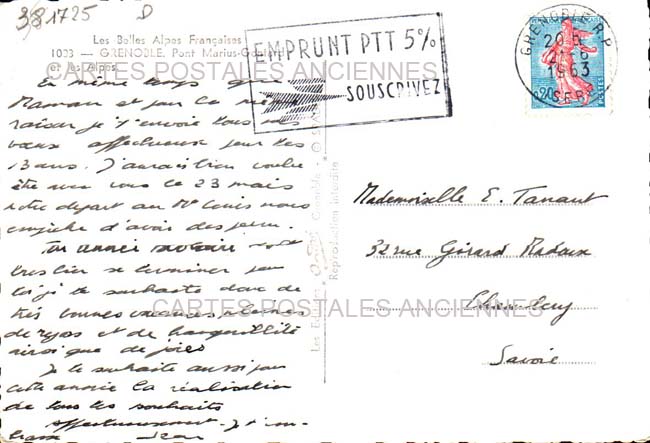 381725 D
Les Belles Alpes Françaises
1023 — GRENOBLE. Pont Marius-Gontard
et les Alpes
CARTES POSTALES ANCIENNES
EMPRUNT PTT 5%
SOUSCRIVEZ
GRENOBLE R.P.
20 H
21-6
1963
ISERE
0,20
En même temps que
Maman et pour la même
raison je t'envoie tous mes
vœux affectueux pour tes
13 ans. J'aurais bien voulu
être avec vous le 23 mais
notre départ au
empêche d'avoir des
Ton année scolaire
très bien se terminer pour
toi je te souhaite donc de
très bonnes vacances pleines
de repos et de tranquillité
ainsi que de joies
Je te souhaite aussi pour
cette année la réalisation
de tous tes souhaits
Affectueusement. Je t'em-
brasse Jean
Reproduction interdite
Mademoiselle E. Tanant
32 rue Gérard Radoux
Chambéry
Savoie
CARTES POSTALES ANCIENNES